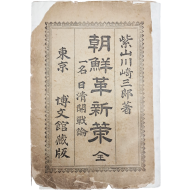 紫山川崎三郎著
朝鮮革新策 全
一名日清開戰論
東京 博文館藏版